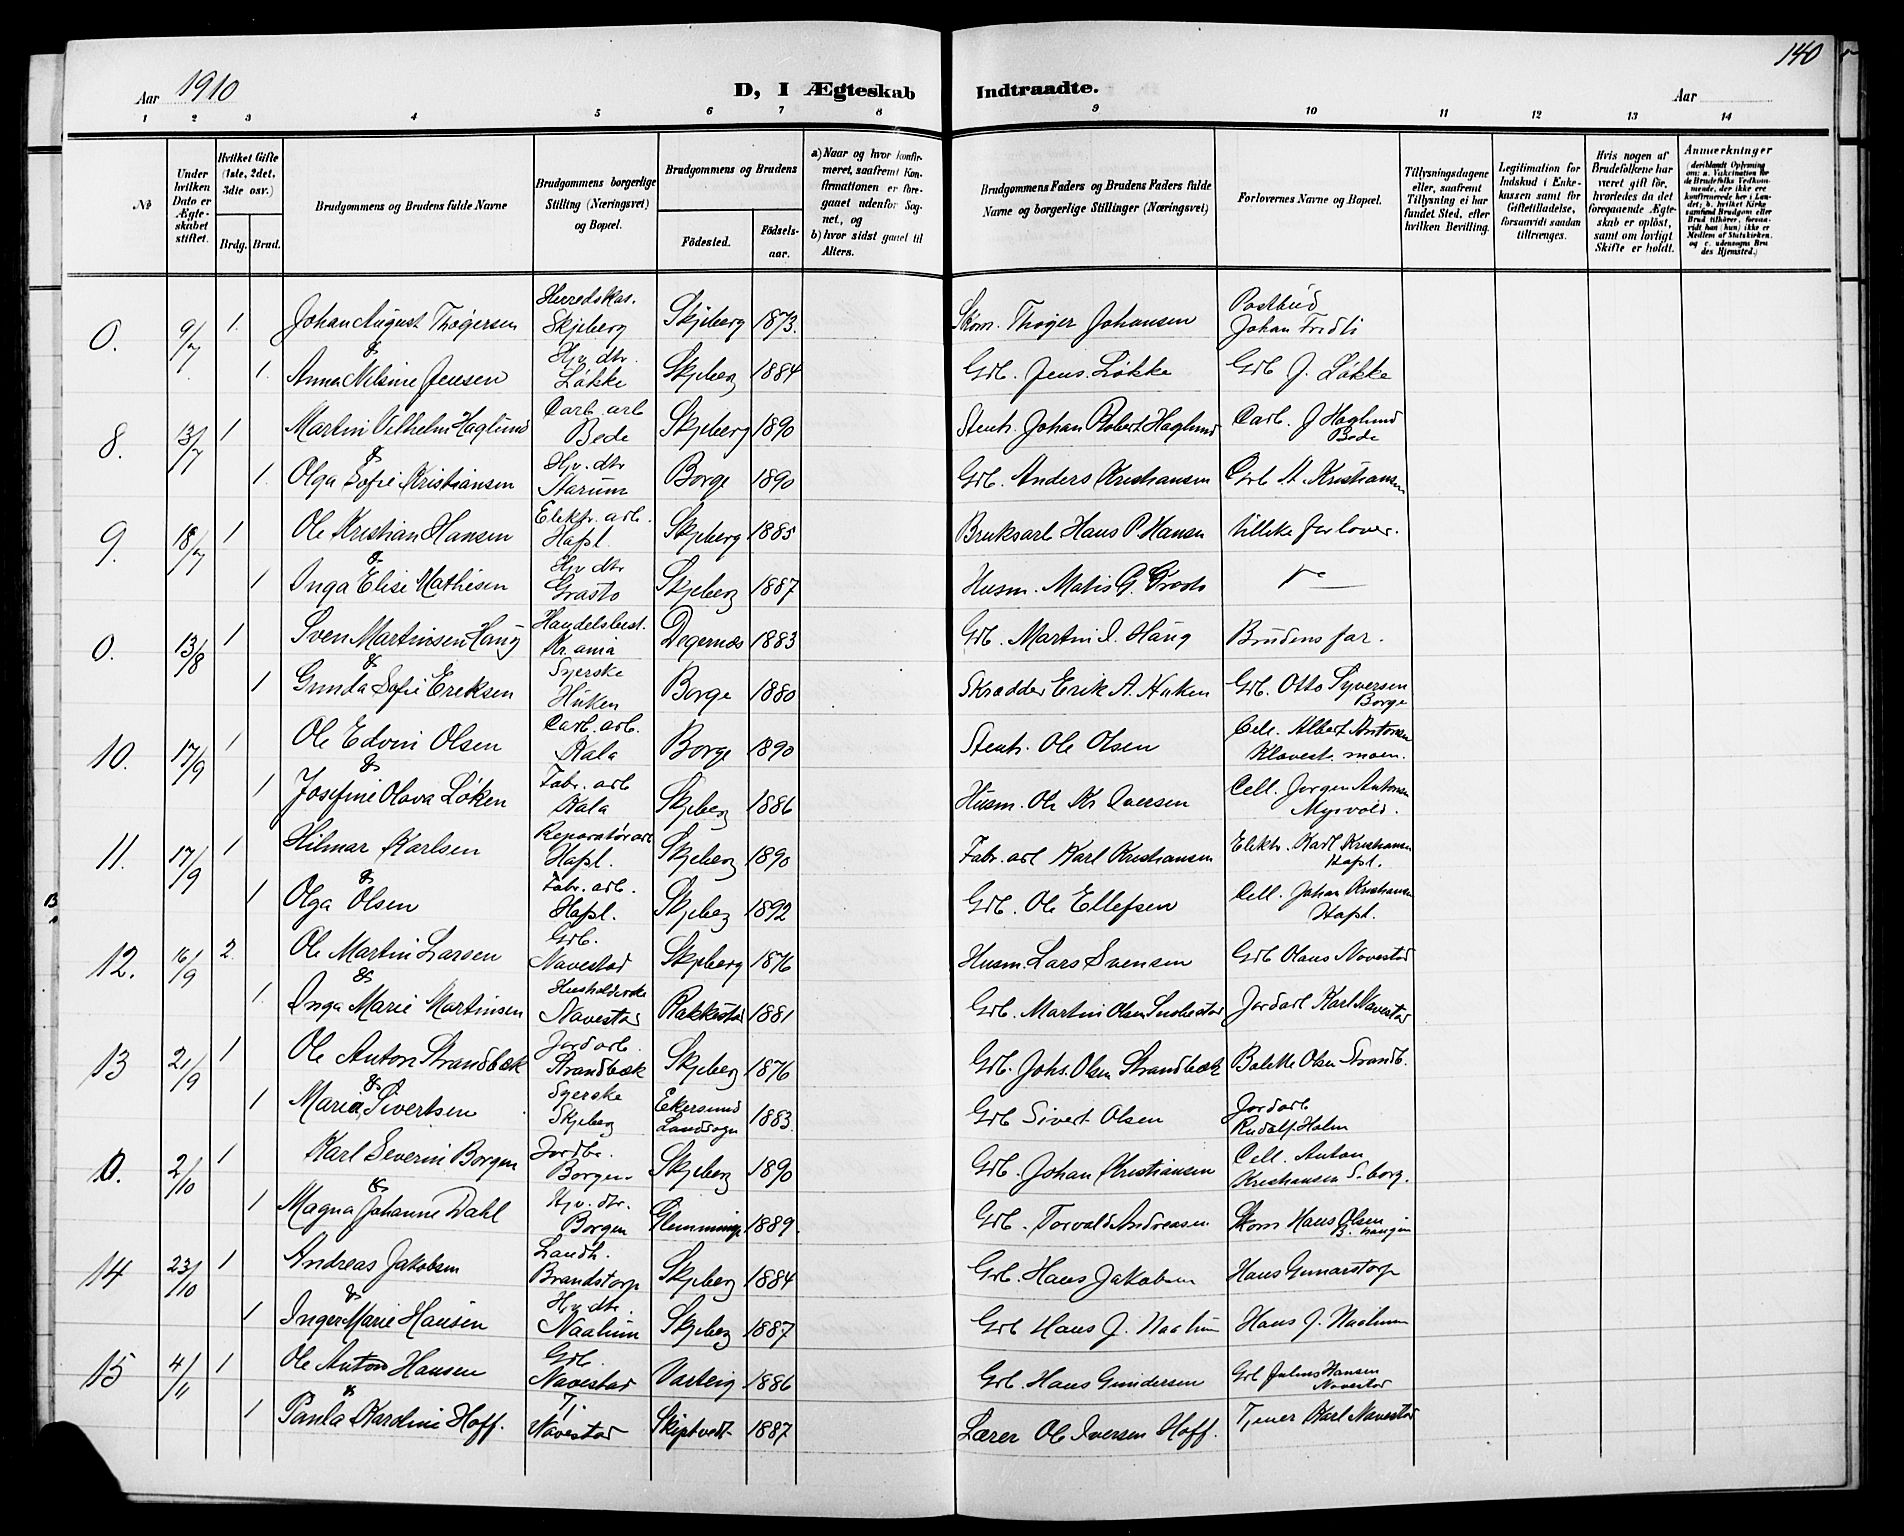 140
Aar 1910
D, I Ægteskab Indtraadte.
Aar
1 2 3 4 5 6 7 8 9 10 11 12 13 14
No
Under hvilken Dato er Ægteskabet stiftet.
Hvilket Gifte (1ste, 2det, 3die osv.)
Brdg. Brud.
Brudgommens og Brudens fulde Navne
Brudgommens borgerlige Stilling (Næringsvei) og Bopæl.
Brudgommens og Brudens
Födested. Födselsaar.
a) Naar og hvor konfirmeret, saafremt Konfirmationen er foregaaet udenfor Sognet, og
b) hvor sidst gaaet til Alters.
Brudgommens Faders og Brudens Faders fulde Navne og borgerlige Stillinger (Næringsvei)
Forlovernes Navne og Bopæl.
Tillysningsdagene eller, saafremt Tillysning ei har fundet Sted, efter hvilken Bevilling.
Legitimation for Indskud i Enkekassen samt for Giftetilladelse, forsaavidt saadan tiltrænges.
Hvis nogen af Brudefolkene har været gift för, hvorledes da det foregaaende Ægteskab er oplöst, samt om lovligt Skifte er holdt.
Anmærkninger
0. 9/7 1. Johan August Thøgersen Herredskas. Skjeberg Skjeberg 1873. Skom. Thøger Johansen Postbud Johan Fridli
& 1. Anna Nilsine Jensen Hjv. dtr. Løkke Skjeberg 1884 Grb. Jens Løkke Grb J. Løkke
8. 13/7 1 Martin Vilhelm Haglund Carb. arb Bede Skjeberg 1890 Stenh. Johan Robert Haglund Carb. J Haglund Bede
& 1. Olga Sofie Kristiansen Hjv. dtr Starum Borge 1890 Grb. Anders Kristiansen Grb A. Kristiansen
9. 18/7 1 Ole Kristian Hansen Elektr. arb. Hafsl Skjeberg 1885 Bruksarb Hans P. Hansen tillike forlover.
& 1 Inga Elise Mathisen Hjv dtr Grasto Skjeberg 1887 Husm. Matis G.
0. 13/8 1 Sven Martinsen Haug Handelsbest. Kr.ania Degernes 1883 Grb. Martin Haug Brudens far.
& 1 Gunda Sofie Ereksen Syerske Huken Borge 1880 Skrædder Erik A. Huken Grb. Otto Syversen Borge
10. 17/9 1 Ole Edvin Olsen Carb. arb. Kala Borge 1890 Stenh. Ole Olsen Cell. Albert Antonsen Klavest. moen.
& 1 Josefine Olava Løken Fabr. arb Kala Skjeberg 1886 Husm. Ole Kr Iversen Cell. Jørgen Antonsen Myrvold.
11. 17/9 1 Hilmar Karlsen Reparatørarb Hafsl. Skjeberg 1890 Fabr. arb Karl Kristiansen Elektr. Karl Kristiansen Hafsl.
& 1 Olga Olsen Fabr. arb. Hafsl. Skjeberg 1892 Grb. Ole Ellefsen Cell. Johan Kristiansen Hafsl.
12. 16/9 2. Ole Martin Larsen Grb. Navestad Skjeberg 1876 Husm. Lars Svensen Grb Olaus Navestad
& 1. Inga Marie Martinsen Husholderske Navestad Rakkestad 1881 Grb. Martin Olsen Jordarb Karl Navestad
13 21/9 1 Ole Anton Strandbæk Jordarb. Strandbæk Skjeberg 1876 Grb. Johs. Olsen Strandbæk Bolette Olsen Strandb.
& 1 Maria Sivertsen Syerske Skjeberg Ekersund Landsogn 1883. Grb Sivert Olsen Jordarb Rudolf Holm
0. 2/10 1 Karl Severin Borgen Jordbr. Borgen Skjeberg 1890 Grb. Johan Kristiansen Cell. Anton Kristiansen S.borg.
& 1 Magna Johanne Dahl Hjv. dtr. Borgen Glemminge 1889. Grb. Torvald Andreasen Skom Hans Olsen
14 23/10 1 Andreas Jakobsen Landh. Brandstorp Skjeberg 1884 Grb. Hans Jakobsen Hans Gunarstorp
& 1 Inger Marie Hansen Hjv. dtr. Naalum Skjeberg 1887 Grb Hans J. Naalum Hans J. Naalum
15 4/11 1 Ole Anton Hansen Grb. Navestad Varteig 1886 Grb. Hans Gundersen Grb Julius Hansen Navestad
& 1 Paula Kardine Hoff. Tj. Navestad Skiptvedt 1887 Lærer Ole Iversen Hoff. Tjener Karl Navestad